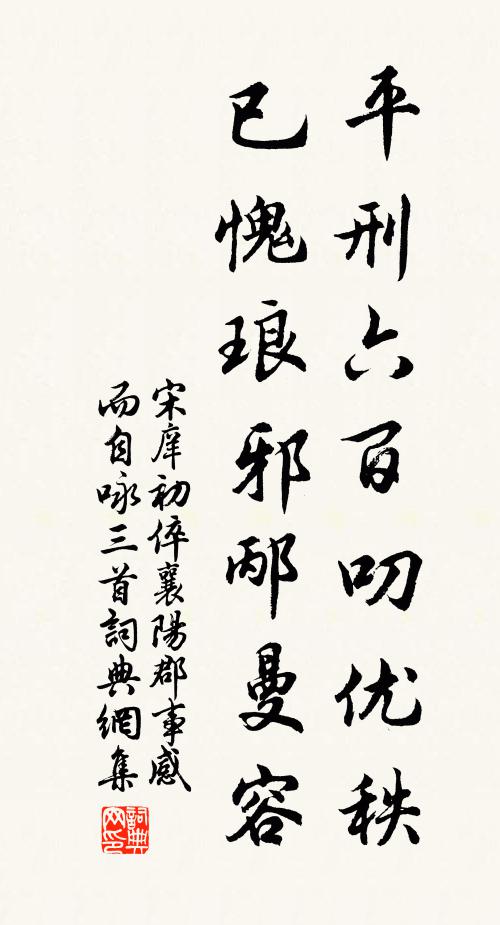 平刑六百叨优秩
已愧琅邪邴曼容
宋庠初倅襄陽郡事感
而自咏三首詞典網集
詞典
网印